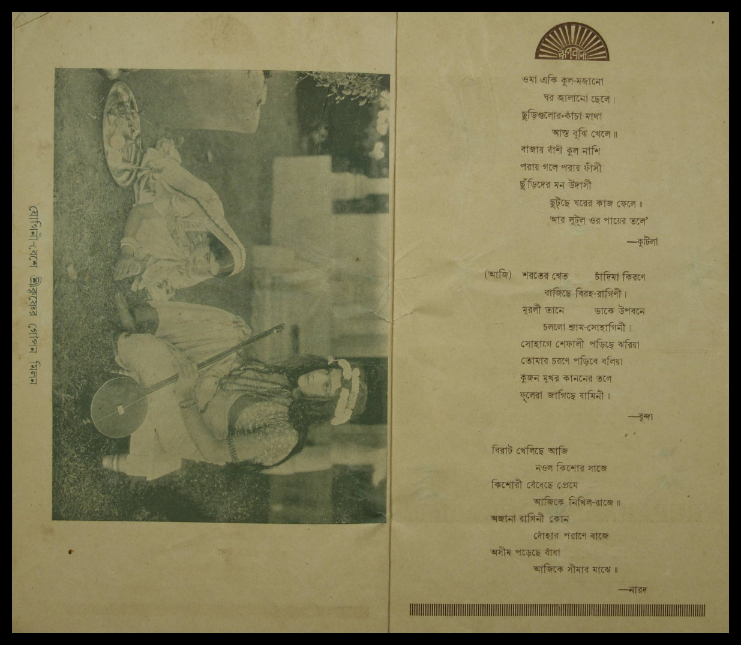 যোগিনী-বেশে শ্রীকৃষ্ণের গোপন মিলন
রূপবাণী
ওমা একি কুল-মজানো
ঘর জ্বালানো ছেলে।
ছুড়িগুলোর-কাঁচা মাথা
আস্ত বুঝি খেলে॥
বাজায় বাঁশী কুল নাশি
পরায় গলে পরায় ফাঁসী
ছুঁড়িদের মন উদাসী
ছুটছে ঘরের কাজ ফেলে॥
আর লুটল ওর পায়ের তলে
—কুটিলা
(আজি) শরতের শ্বেত চাঁদিমা কিরণে
বাজিছে বিরহ-রাগিণী।
মুরলী তানে ডাকে উপবনে
চললো শ্যাম-সোহাগিনী।
সোহাগে শেফালী পড়িছে ঝরিয়া
তোমার চরণে পড়িবে বলিয়া
কুজন মুখর কাননের তলে
ফুলেরা জাগিছে যামিনী।
—বৃন্দা
বিরাট খেলিছে আজি
নওল কিশোর সাজে
কিশোরী বেঁধেছে প্রেমে
আজিকে নিখিল-রাজে॥
অজানা রাগিনী কোন
দোঁহার পরাণে বাজে
অসীম পড়েছে বাঁধা
আজিকে সীমার মাঝে॥
—নারদ